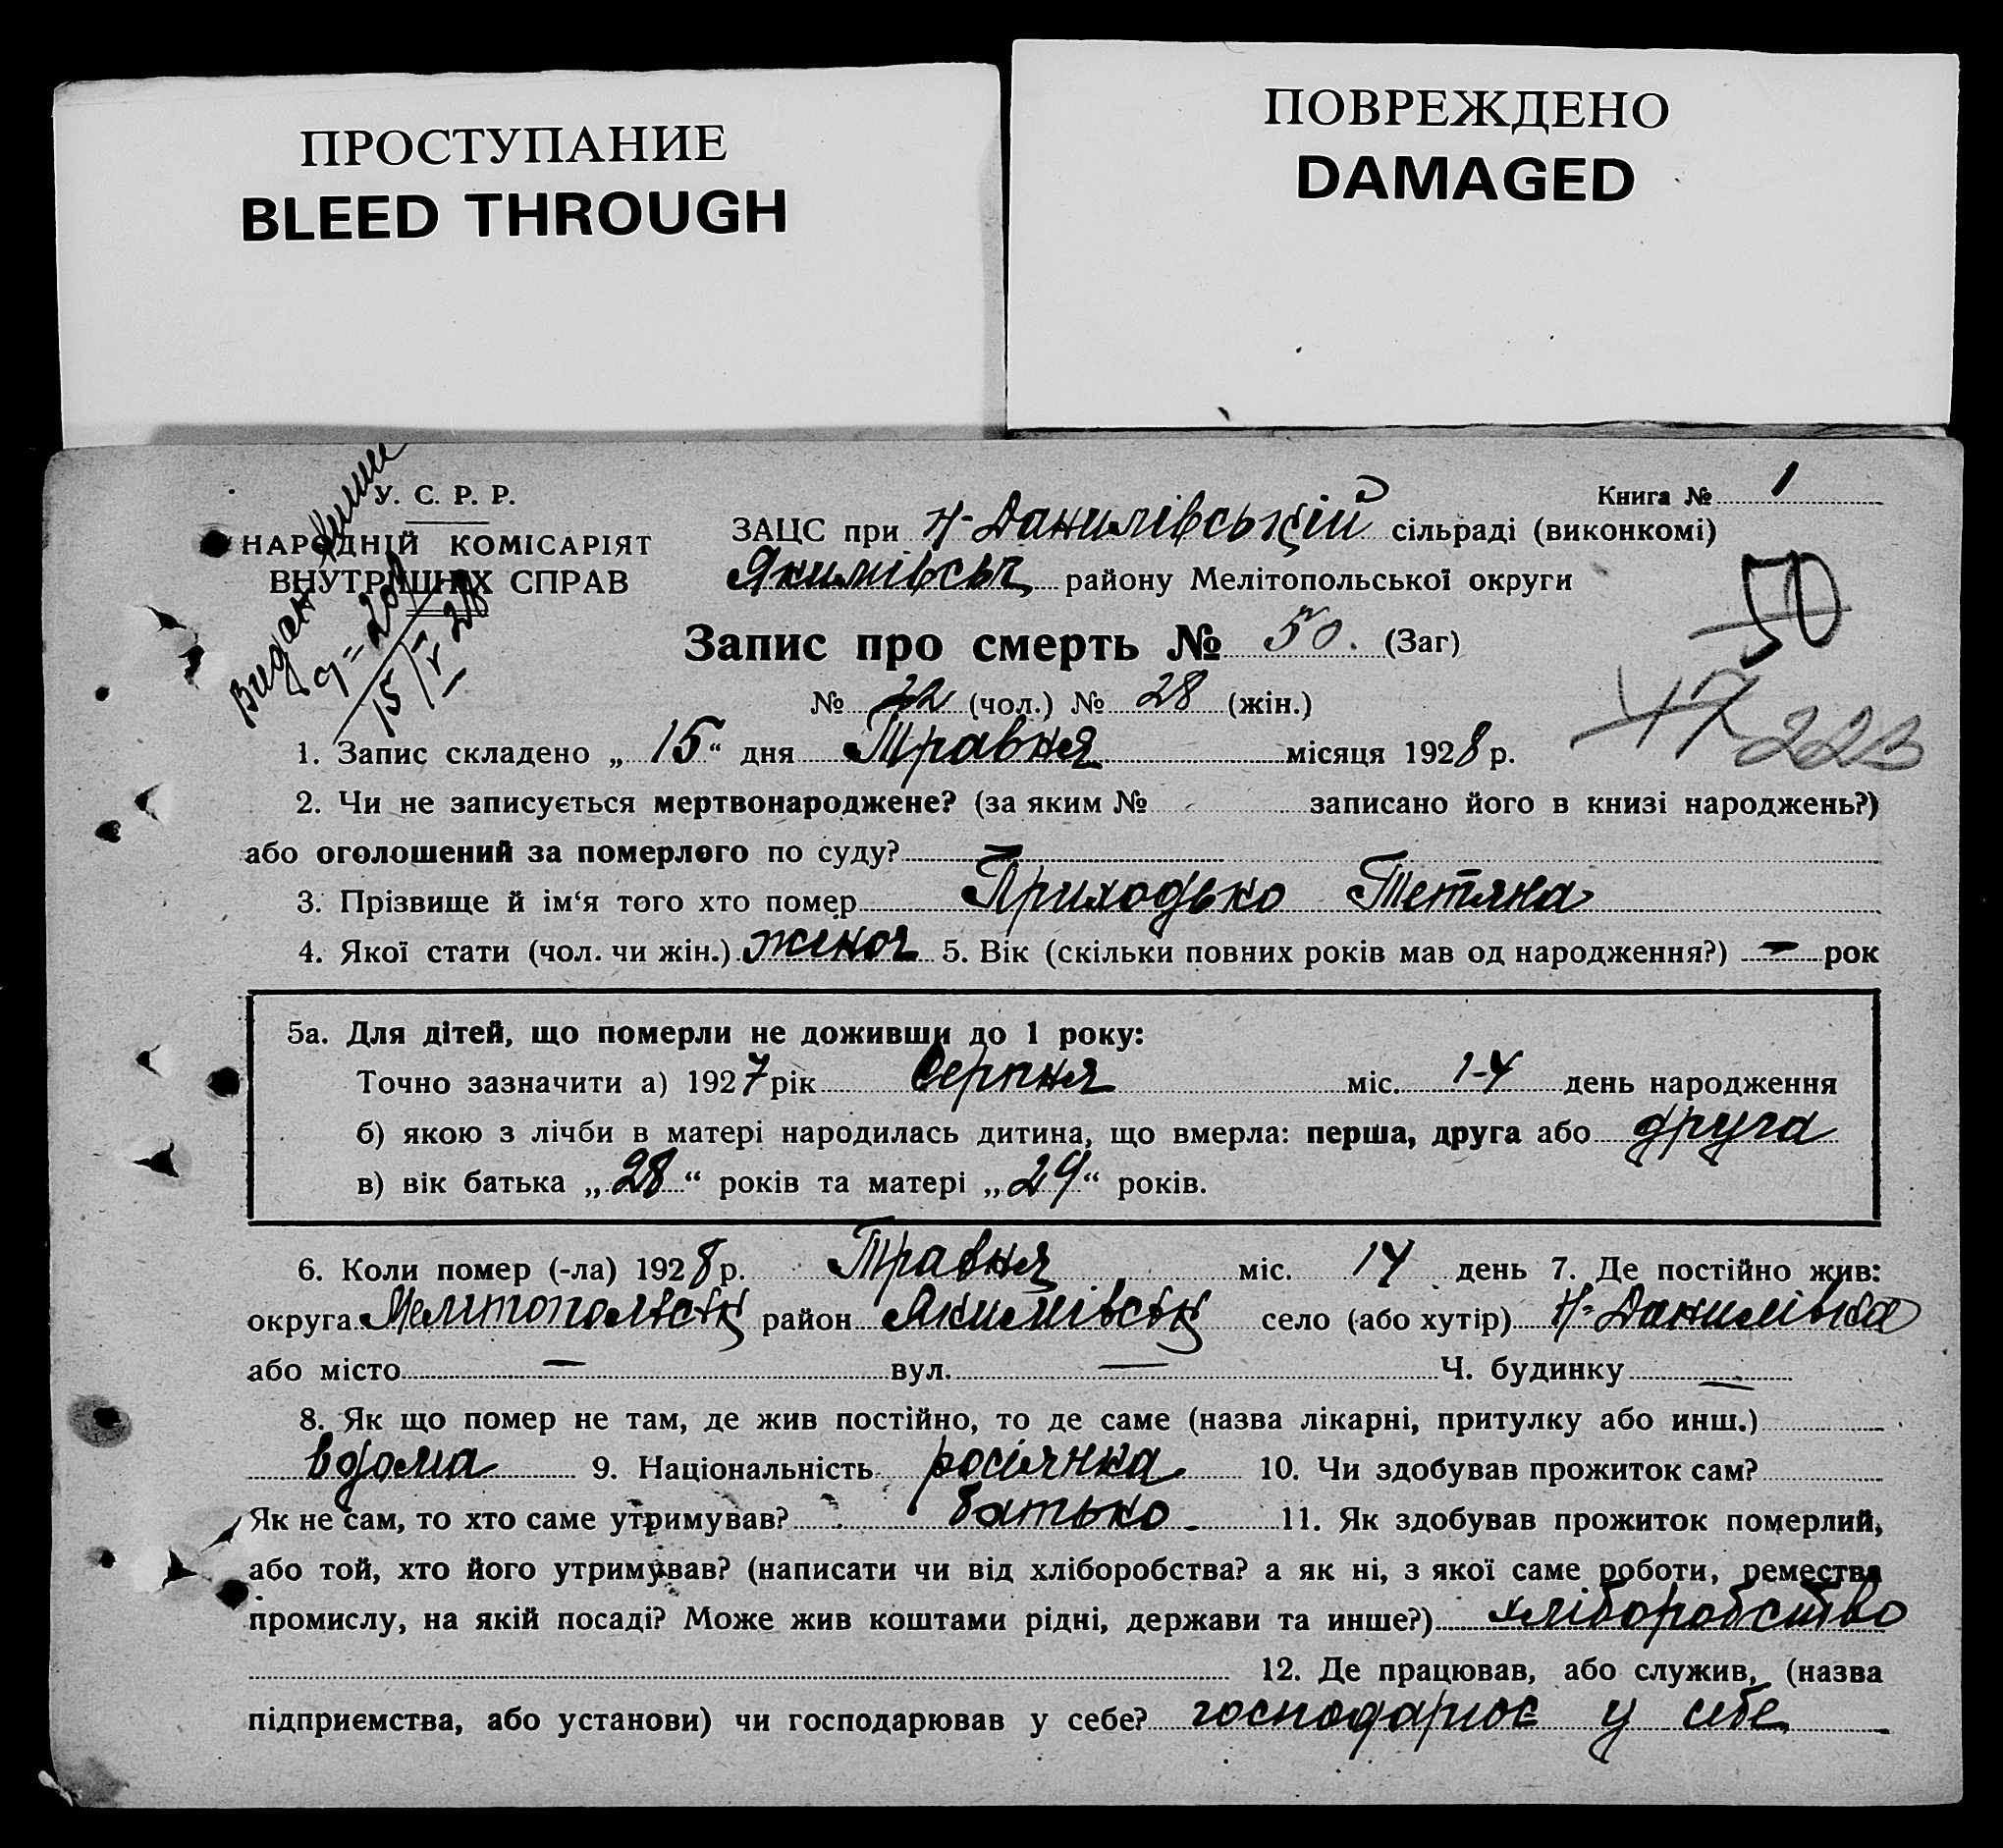 ПРОСТУПАНИЕ
BLEED THROUGH
ПОВРЕЖДЕНО
DAMAGED
У. С. Р. Р.
НАРОДНІЙ КОМІСАРІЯТ
ВНУТРІШНІХ СПРАВ
15/V 28
Книга № 1
ЗАЦС при Н-Данилівській сільраді (виконкомі)
Якимівськ району Мелітопольської округи
50
Запис про смерть № 50. (Заг)
47 223
№ 22 (чол.) № 28 (жін.)
1. Запис складено „ 15 “ дня Травня місяця 1928 р.
2. Чи не записується мертвонароджене? (за яким № записано його в книзі народжень?)
або оголошений за померлого по суду? —
3. Прізвище й ім‘я того хто помер Приходько Тетяна
4. Якої стати (чол. чи жін.) жіноч 5. Вік (скільки повних років мав од народження?) — рок
5а. Для дітей, що померли не доживши до 1 року:
Точно зазначити а) 1927 рік Серпня міс. 14 день народження
б) якою з лічби в матері народилась дитина, що вмерла: перша, друга або друга
в) вік батька „ 28 “ років та матері „ 29 “ років.
6. Коли помер (-ла) 1928 р. Травня міс. 14 день 7. Де постійно жив:
округа Мелітопольськ район Якимівськ село (або хутір) Н-Данилівка
або місто — вул. — Ч. будинку —
8. Як що помер не там, де жив постійно, то де саме (назва лікарні, притулку або инш.)
вдома 9. Національність росіянка 10. Чи здобував прожиток сам?
Як не сам, то хто саме утримував? батько 11. Як здобував прожиток померлий,
або той, хто його утримував? (написати чи від хліборобства? а як ні, з якої саме роботи, ремества
промислу, на якій посаді? Може жив коштами рідні, держави та инше?) хліборобство
12. Де працював, або служив, (назва
підприємства, або установи) чи господарював у себе? господарює у себе